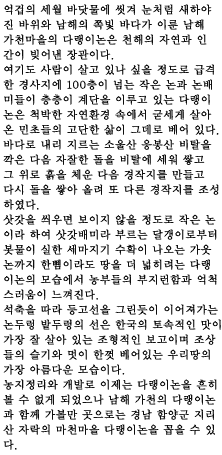 억겁의 세월 바닷물에 씻겨 눈처럼 새하얘
진 바위와 남해의 쪽빛 바다가 이룬 남해
가천마을의 다랭이논은 천혜의 자연과 인
간이 빚어낸 장관이다.
여기도 사람이 살고 있나 싶을 정도로 급격
한 경사지에 100층이 넘는 작은 논과 논배
미들이 층층이 계단을 이루고 있는 다랭이
논은 척박한 자연환경 속에서 굳세게 살아
온 민초들의 고단한 삶이 그데로 베어 있다.
바다로 내리 지르는 소울산 응봉산 비탈을
깍은 다음 자잘한 돌을 비탈에 세워 쌓고
그 위로 흙을 체운 다음 경작지를 만들고
다시 돌을 쌓아 올려 또 다른 경작지를 조성
하였다.
삿갓을 씌우면 보이지 않을 정도로 작은 논
이라 하여 삿갓배미라 부르는 달갱이로부터
봇물이 실한 세마지기 수확이 나오는 가웃
논까지 한뼘이라도 땅을 더 넓히려는 다랭
이논의 모습에서 농부들의 부지런함과 억척
스러움이 느껴진다.
석축을 따라 등고선을 그린듯이 이어져가는
논두렁 밭두렁의 선은 한국의 토속적인 맛이
가장 잘 살아 있는 조형적인 보고이며 조상
들의 슬기와 멋이 한껏 베어있는 우리땅의
가장 아름다운 모습이다.
농지정리와 개발로 이제는 다랭이논을 흔히
볼 수 없게 되었으나 남해 가천의 다랭이논
과 함께 가볼만 곳으로는 경남 함양군 지리
산 자락의 마천마을 다랭이논을 꼽을 수 있
다.